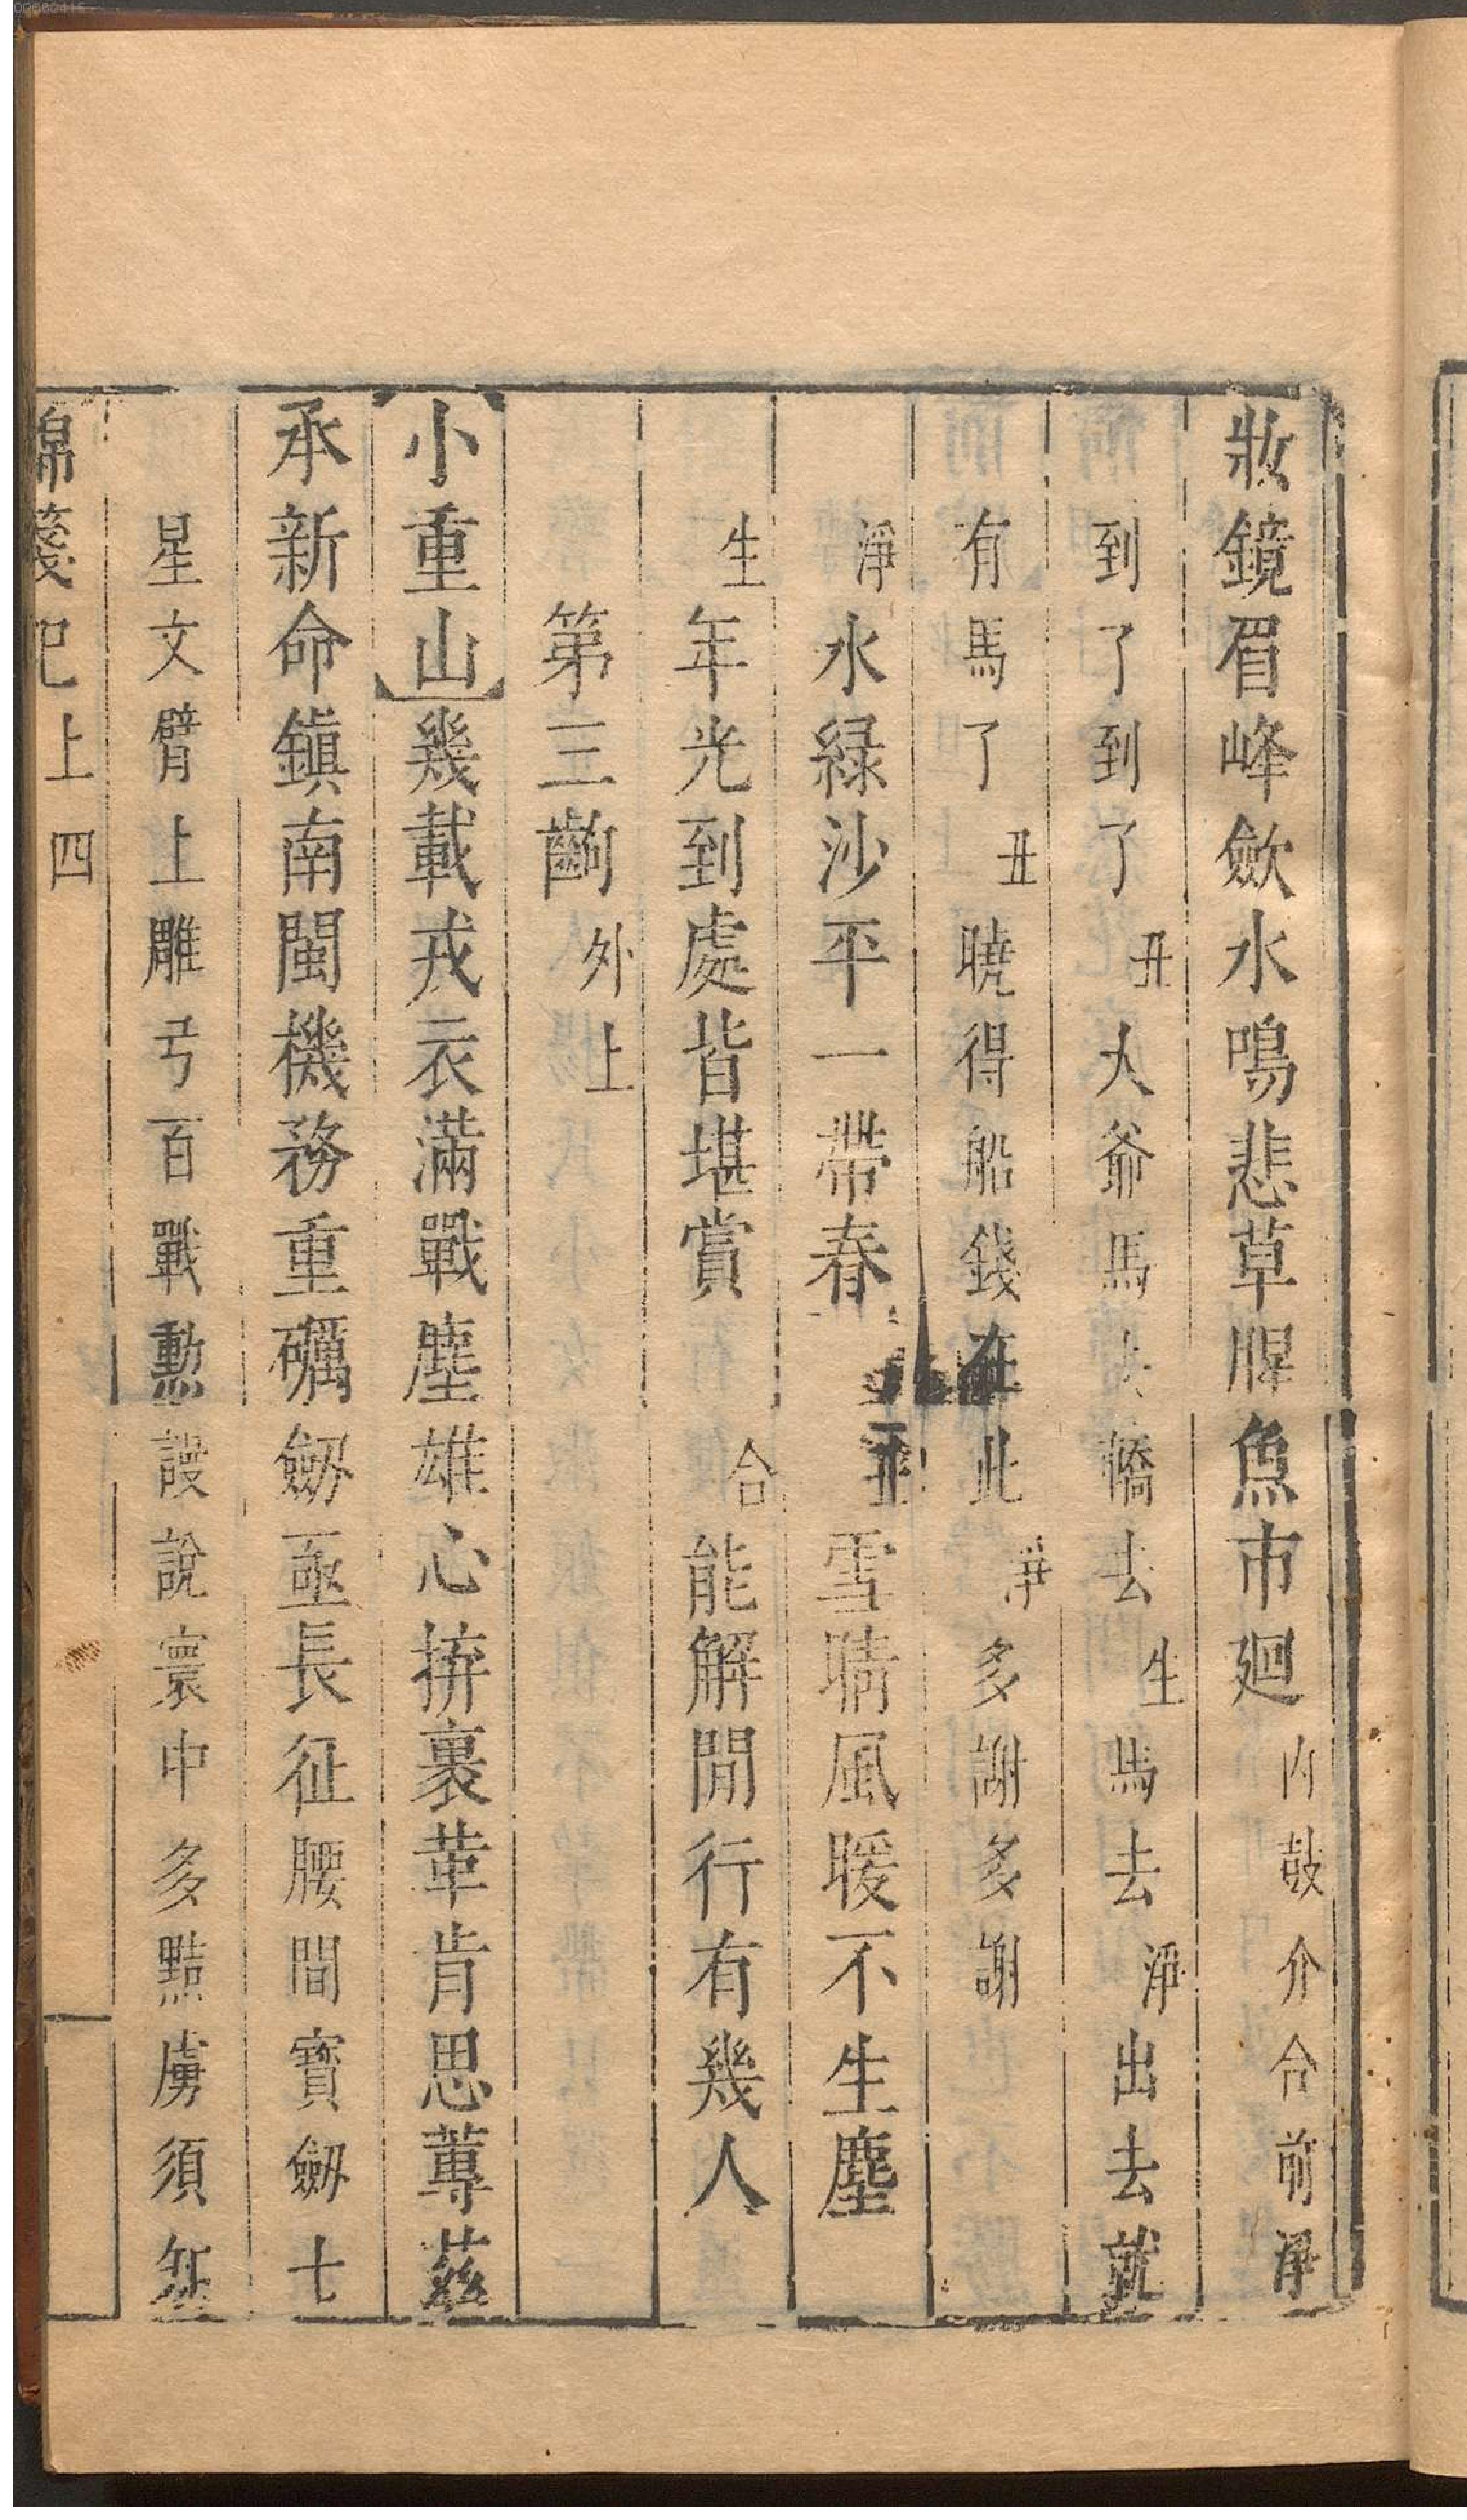 妝鏡眉峰斂水鳴悲草腥魚市廻内鼓介合前淨
到了到了丑大爺馬上轎去生馬去淨出去就
有馬了丑曉得船錢在此淨多謝多謝
淨水緑沙平一帶春丑雪晴風暖不生塵
生年光到處皆堪賞合能解閒行有幾人
第三齣外上
小重山幾載戎衣滿戰塵雄心拚裹革肯思蓴兹
承新命鎭南閩機務重礪劒亟長征腰間寶劒七
星文臂上雕弓百戰勲設說寰中多黠虜須
錦箋記上四